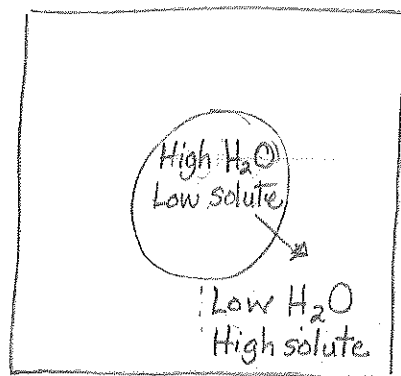 High H₂O
Low solute
Low H₂O
High solute